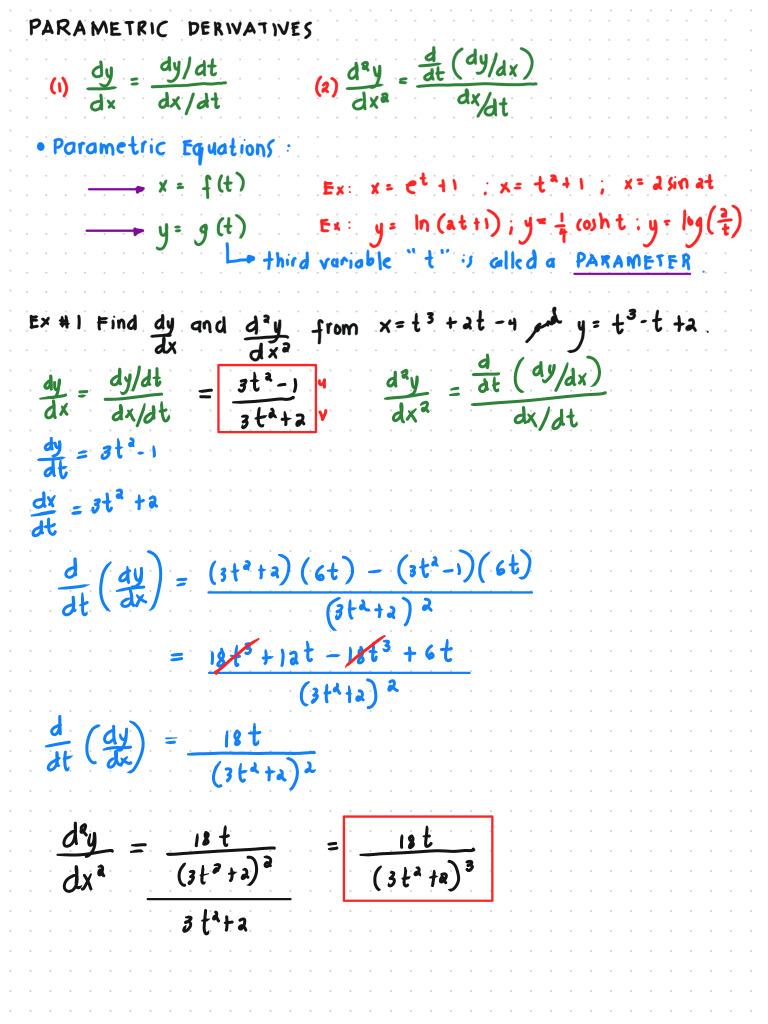 PARAMETRIC DERIVATIVES
(1) dy/dx = (dy/dt)/(dx/dt) (2) d²y/dx² = (d/dt (dy/dx))/(dx/dt)
• Parametric Equations :
→ x = f(t) Ex: x = e^t + 1 ; x = t² + 1 ; x = 2 sin 2t
→ y = g(t) Ex: y = ln (2t+1) ; y = 1/4 cosh t ; y = log(2/t)
↳ third variable "t" is called a PARAMETER .
EX #1 Find dy/dx and d²y/dx² from x = t³ + 2t - 4 and y = t³ - t + 2 .
dy/dx = (dy/dt)/(dx/dt) = (3t² - 1)/(3t² + 2) u v d²y/dx² = (d/dt (dy/dx))/(dx/dt)
dy/dt = 3t² - 1
dx/dt = 3t² + 2
d/dt (dy/dx) = ((3t² + 2)(6t) - (3t² - 1)(6t))/(3t² + 2)²
= (18t³ + 12t - 18t³ + 6t)/(3t² + 2)²
d/dt (dy/dx) = 18t/(3t² + 2)²
d²y/dx² = (18t/(3t² + 2)²)/(3t² + 2) = 18t/(3t² + 2)³